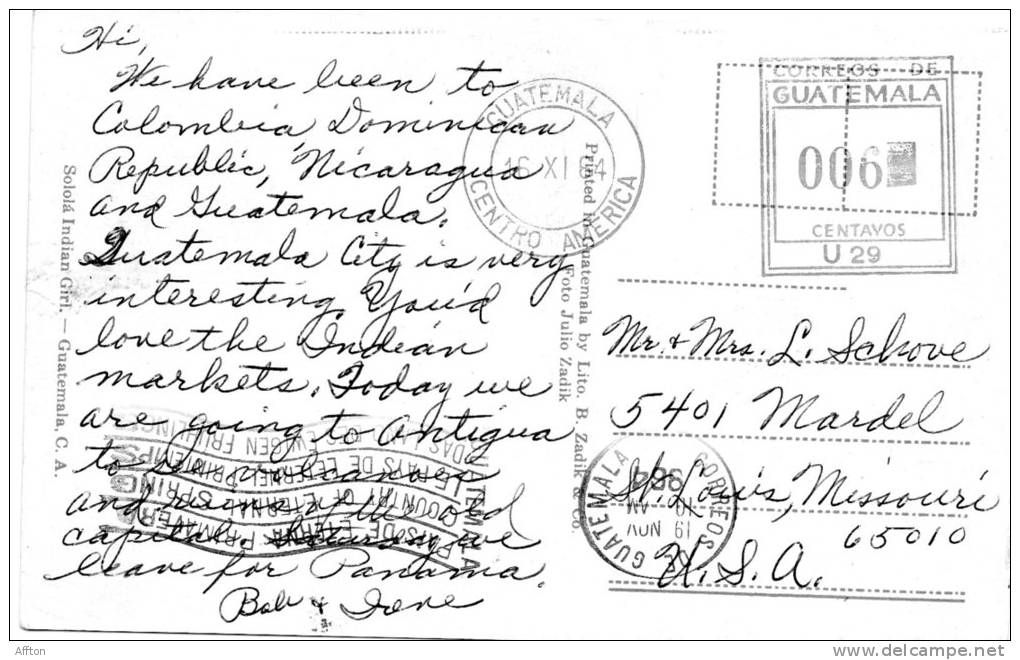 Hi,
We have been to
Colombia, Dominican
Republic, Nicaragua
and Guatemala.
Guatemala City is very
interesting. You'd
love the Indian
markets. Today we
are going to Antigua
to
and ruins of the old
capital. we
leave for Panama.
Bob & Irene
Sololá Indian Girl. — Guatemala, C. A.
Printed in Guatemala by Lito. B. Zadik & Co.
Foto Julio Zadik
GUATEMALA
16 XI 64
CENTRO AMERICA
CORREOS DE
GUATEMALA
006
CENTAVOS
U 29
Mr. & Mrs. L. Schove
5401 Mardel
St. Louis, Missouri
65010
U.S.A.
CORREOS
GUATEMALA
19 NOV
AM
DAS LAND DES EWIGEN FRUHLINGS
LE PAYS DE L'ETERNEL PRINTEMPS
COUNTRY OF ETERNAL SPRING
PAIS DE ETERNA PRIMAVERA
GUATEMALA
Affton
www.delcampe.net